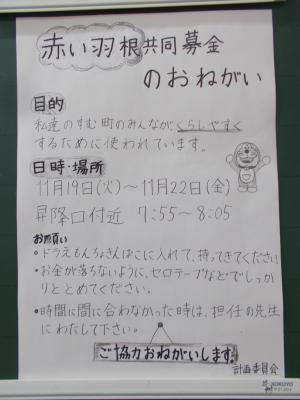 赤い羽根共同募金
のおねがい
目的
私達のすむ町のみんながくらしやすく
するために使われています。
日時・場所
11月19日(火)～11月22日(金)
昇降口付近 7:55～8:05
お願い
・ドラえもんちょきんばこに入れて、持ってきてください
・お金が落ちないように、セロテープなどでしっか
りととめてください。
・時間に間に合わなかった時は、担任の先生
にわたして下さい。
ご協力おねがいします。
計画委員会
KOKUYO